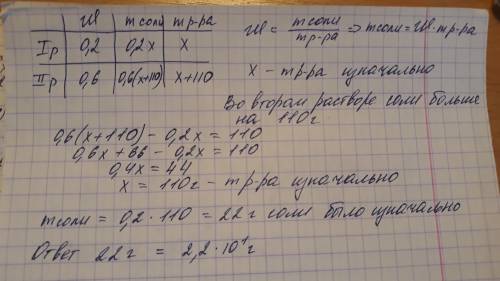 W | m соли | m р-ра
I р | 0,2 | 0,2x | x
II р | 0,6 | 0,6(x+110) | x+110
W = m соли / m р-ра => m соли = W · m р-ра
x - m р-ра изначально
Во втором растворе соли больше
на 110г
0,6(x+110) - 0,2x = 110
0,6x + 66 - 0,2x = 110
0,4x = 44
x = 110г - m р-ра изначально
m соли = 0,2 · 110 = 22 г соли было изначально
Ответ 22 г = 2,2 · 10¹ г